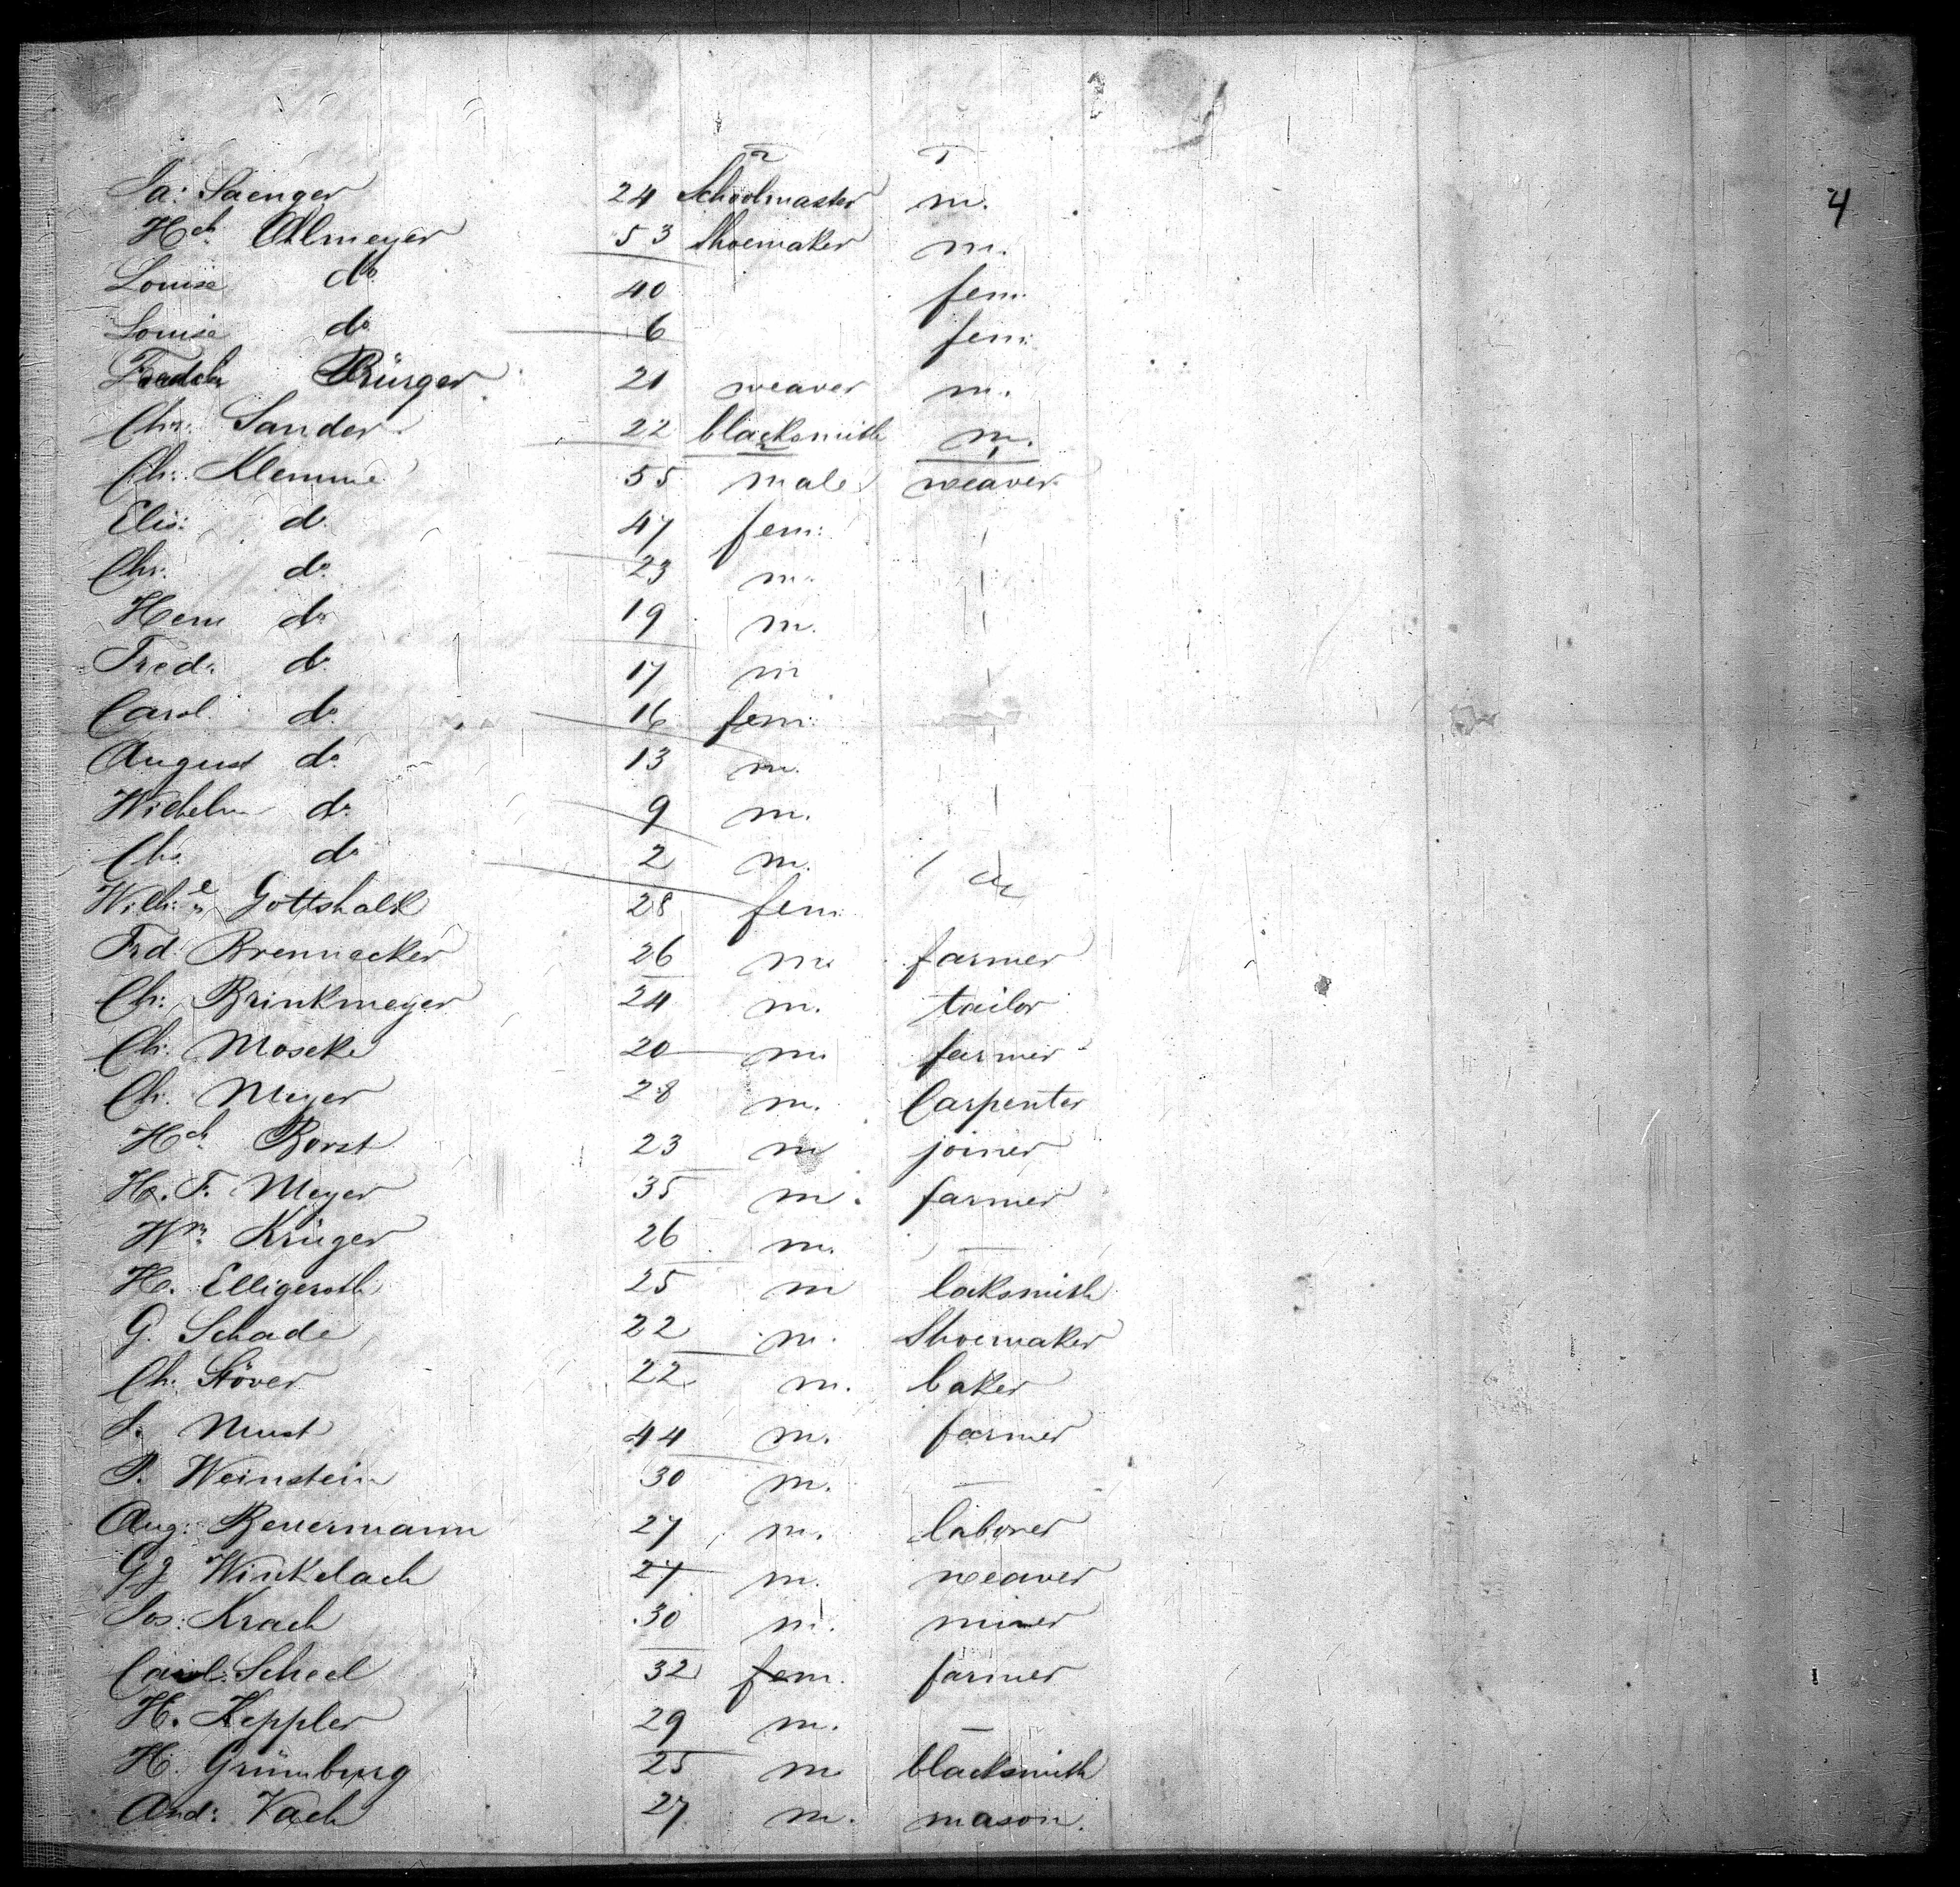 2 1
4
Ja: Saenger 24 Schoolmaster m.
Hch. Ahlmeyer 53 Shoemaker m.
Louise do. 40 fem:
Louise do 6 fem:
Fredch Bürger 21 weaver m.
Chr: Sander 22 blacksmith m.
2 1
Ch: Klemme 55 male weaver
Elis: do. 47 fem:
Chr. do. 23 m.
Henr do 19 m.
Fred: do. 17 m
Carol. do. 16 fem:
August do. 13 m.
Wilhelm do. 9 m.
Chs. do 2 m.
Wilh:e Gottshalk 28 fem:
Frd: Brennecker 26 m. farmer
Ch: Brinkmeyer 24 m. tailor
Ch. Moseke 20 m. farmer
Ch. Meyer 28 m. Carpenter
Hch. Borst 23 m joiner
H. F. Meyer 35 m. farmer
Wm. Krüger 26 m. —
H. Elligeroth 25 m locksmith
G. Schade 22 m. Shoemaker
Ch. Stöver 22 m. baker
Must 44 m. farmer
P. Weinstein 30 m. —
Aug: Beuermann 27 m. laborer
Gg Winkelach 27 m. weaver
Jos: Krach 30 m. miner
Carol. Scheel 32 fem. farmer
H. Keppler 29 m. —
H. Grünburg 25 m. blacksmith
And: Vach 27 m. mason.